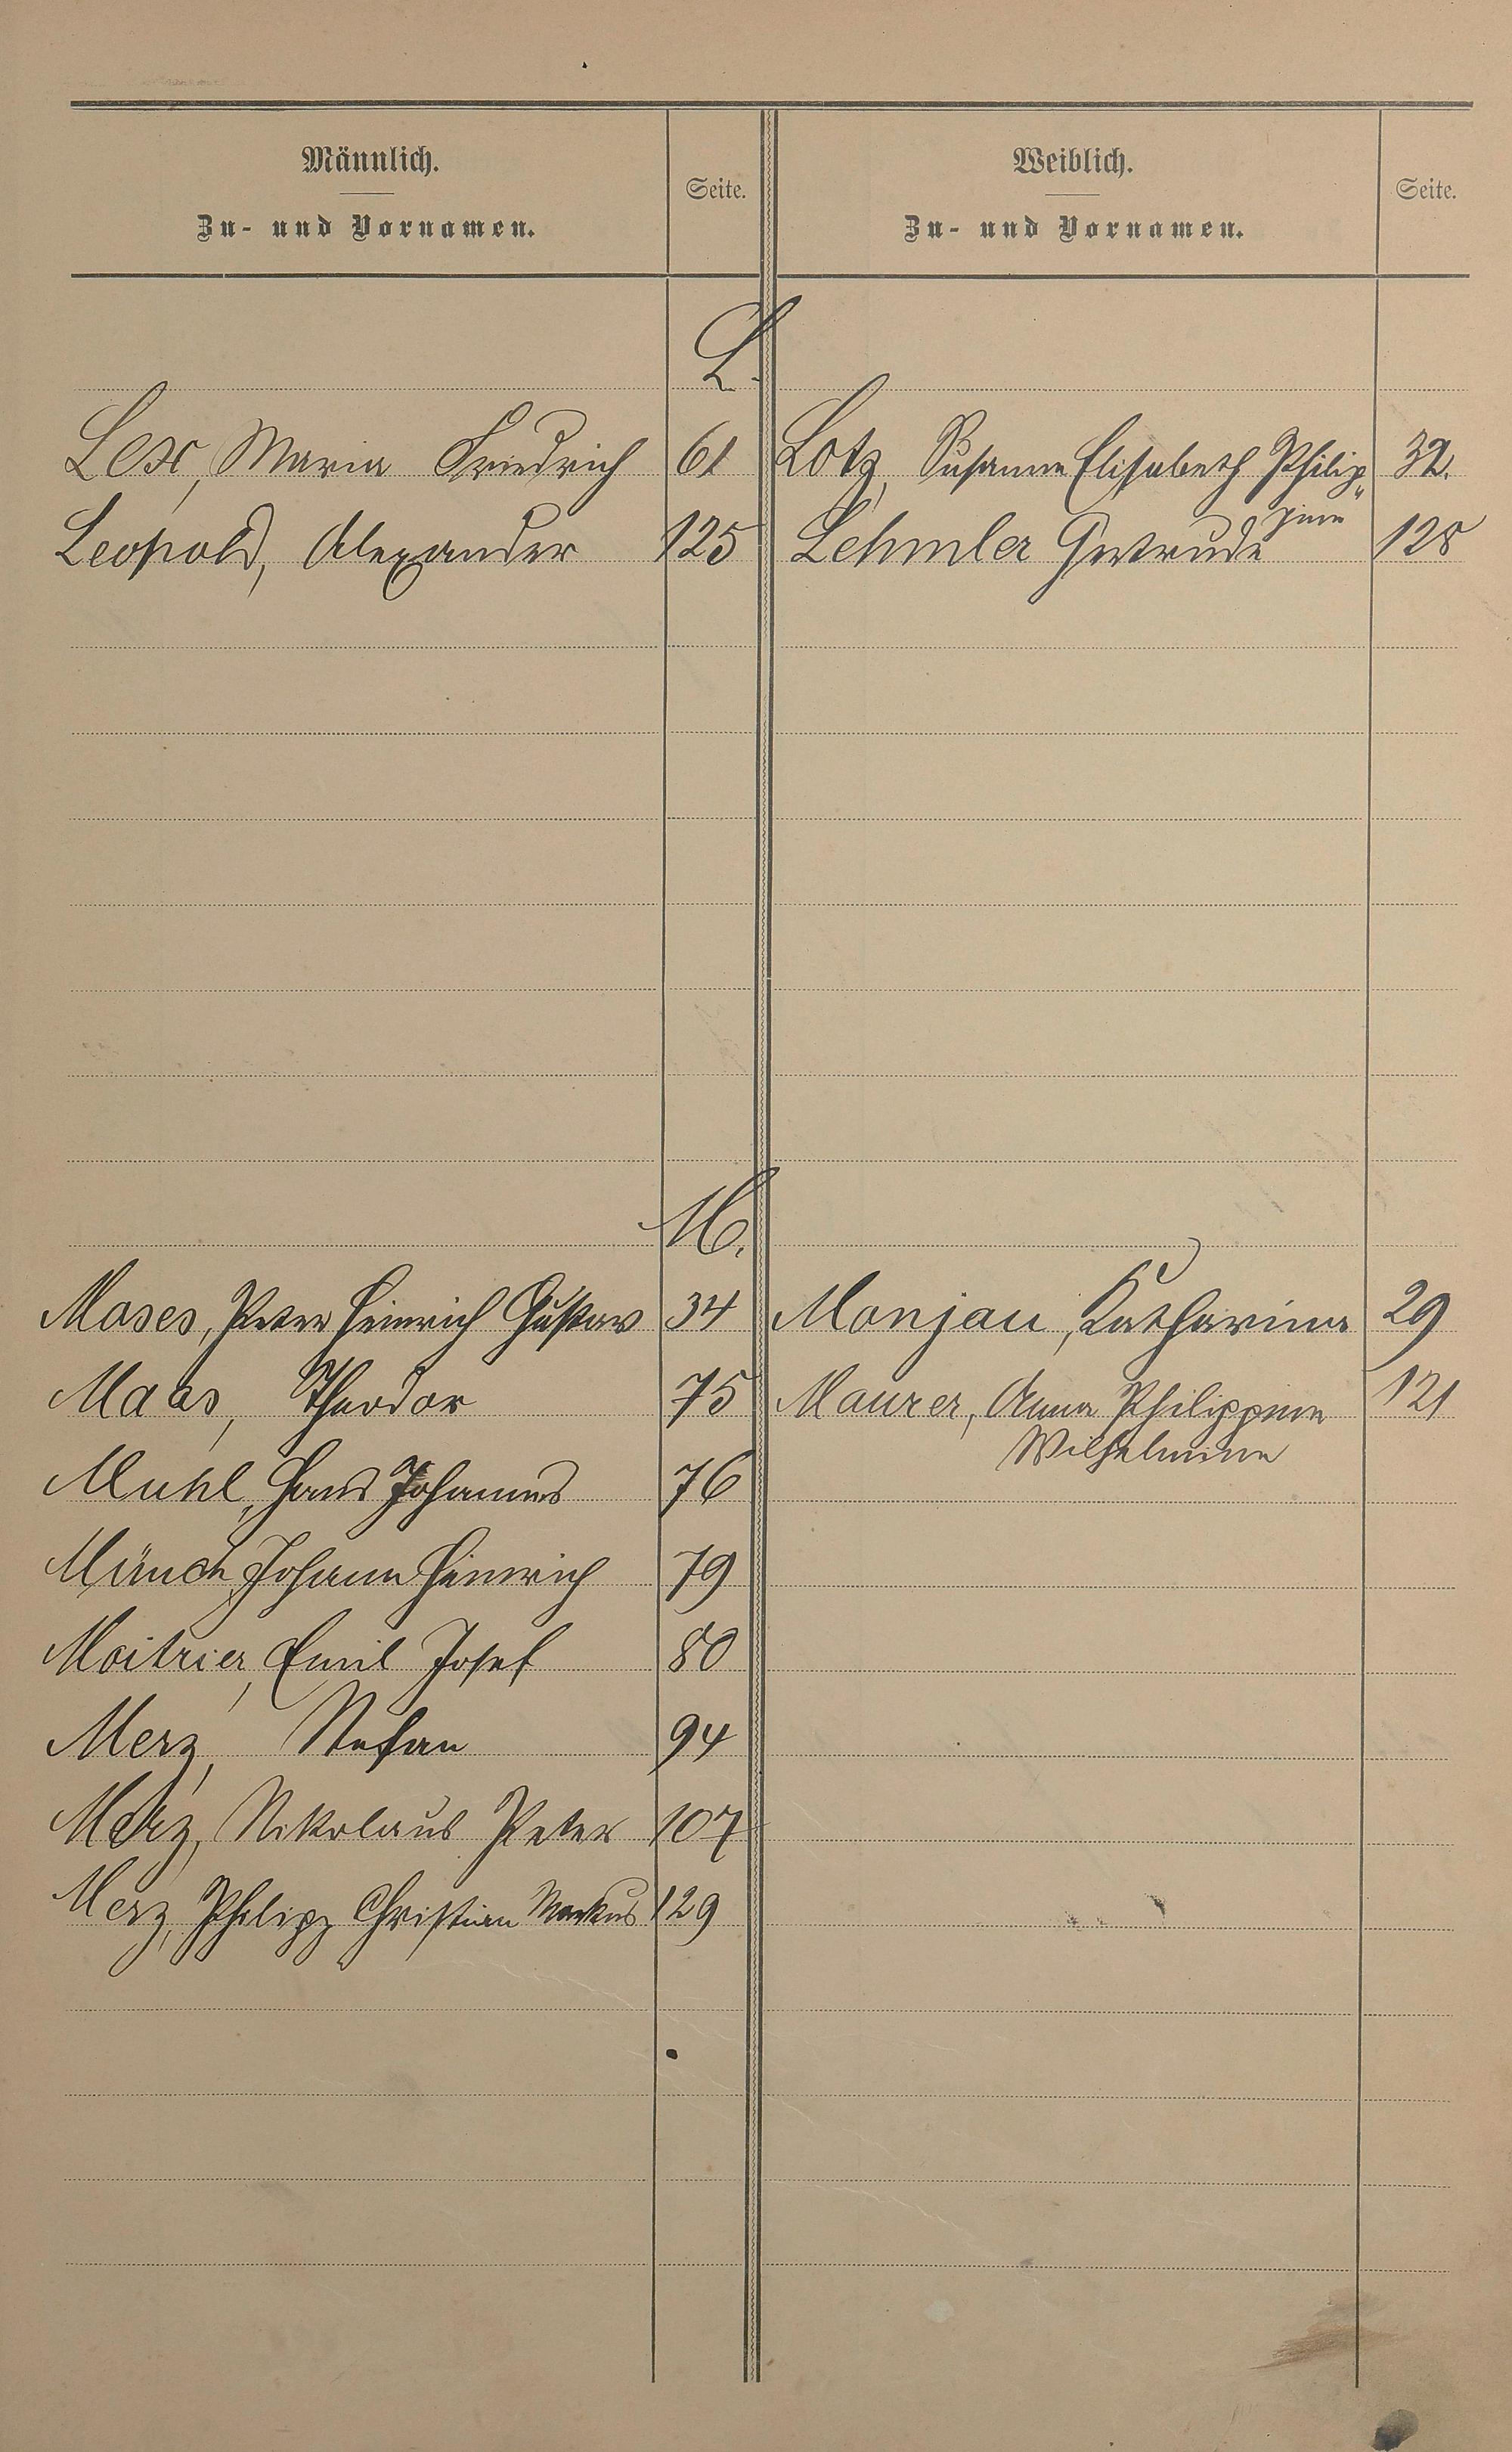 Männlich.
Zu- und Vornamen.
Seite.
Weiblich.
Zu- und Vornamen.
Seite.
L.
Lex, Maria Friedrich 61
Lotz, Susanna Elisabeth Philip„ 32.
pine
Leopold, Alexander 125
Lehmler Gertrude 128
M.
Moses, Peter Heinrich Gustav 34
Monjau, Katharina 29
Maas, Theodor 75
Maurer, Anna Philippine 121
Wilhelmine
Muhl, Hans Johannes 76
Münch, Johann Heinrich 79
Moitrier, Emil Josef 80
Merz, Stefan 94
Merz, Nikolaus Peter 107
Merz, Philipp Christian Markus 129